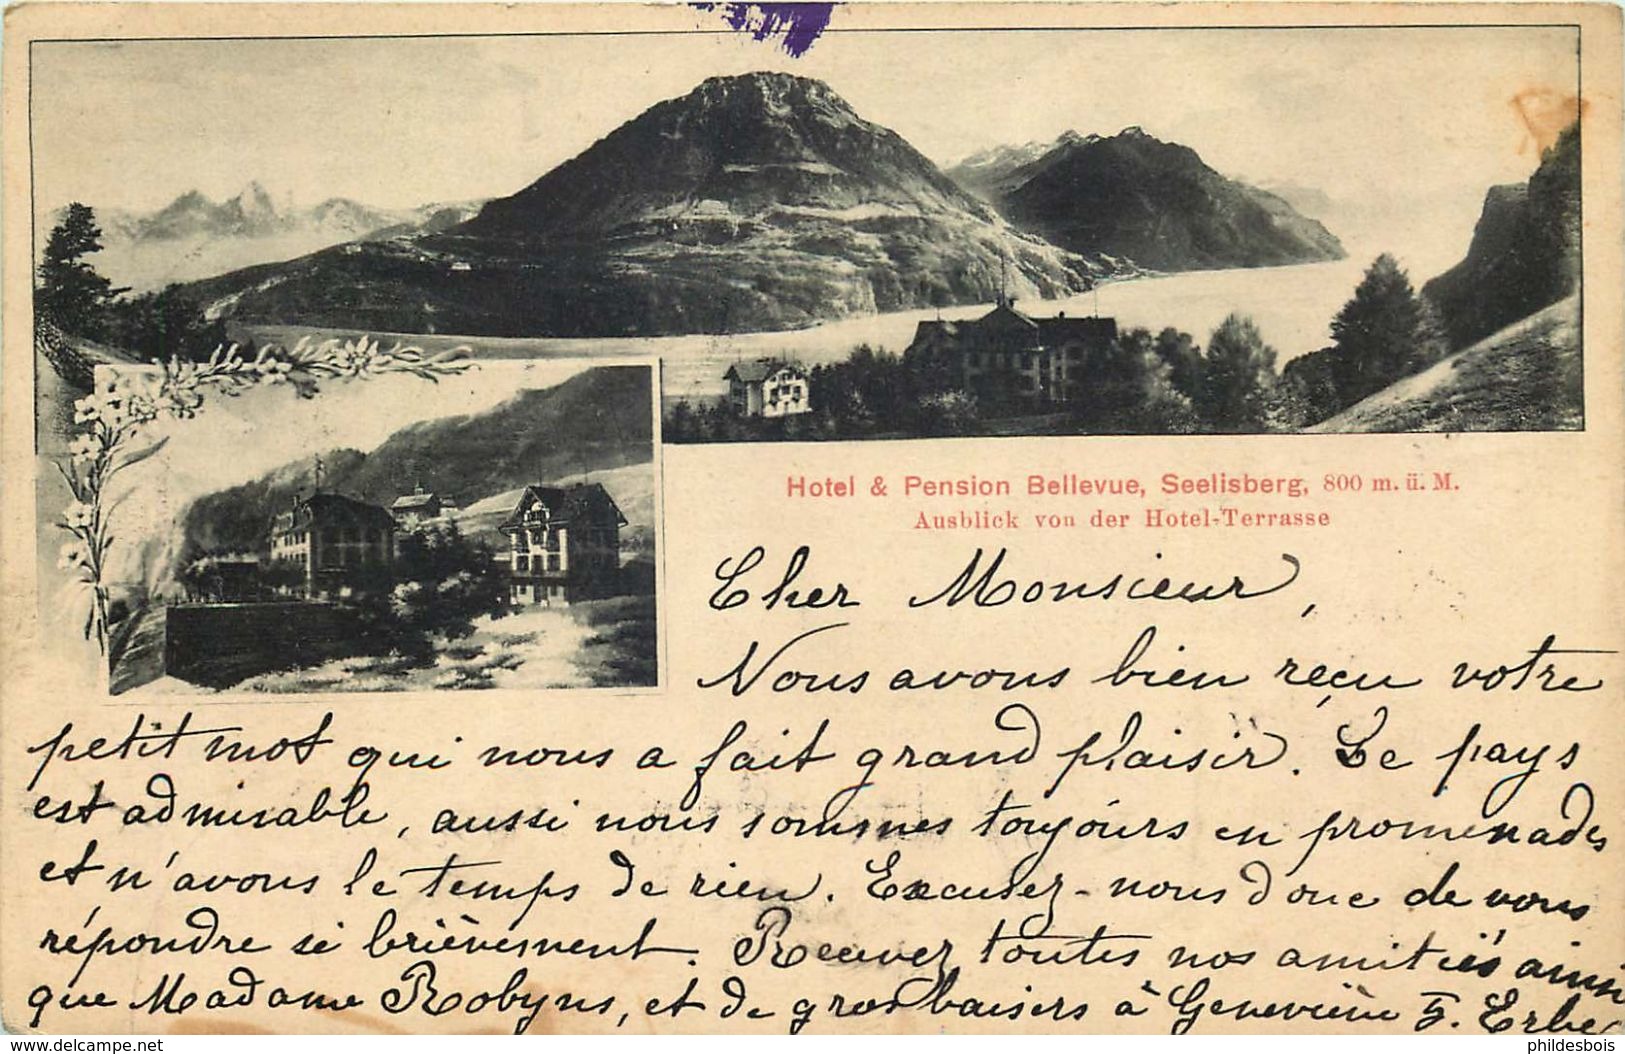 Hotel & Pension Bellevue, Seelisberg, 800 m. ü. M.
Ausblick von der Hotel-Terrasse
Cher Monsieur,
Nous avons bien reçu votre
petit mot qui nous a fait grand plaisir. Le pays
est admirable, aussi nous sommes toujours en promenades
et n'avons le temps de rien. Excusez-nous donc de vous
répondre si brièvement. Recevez toutes nos amitiés ainsi
que Madame Robyns, et de gros baisers à Geneviève
www.delcampe.net
phildesbois